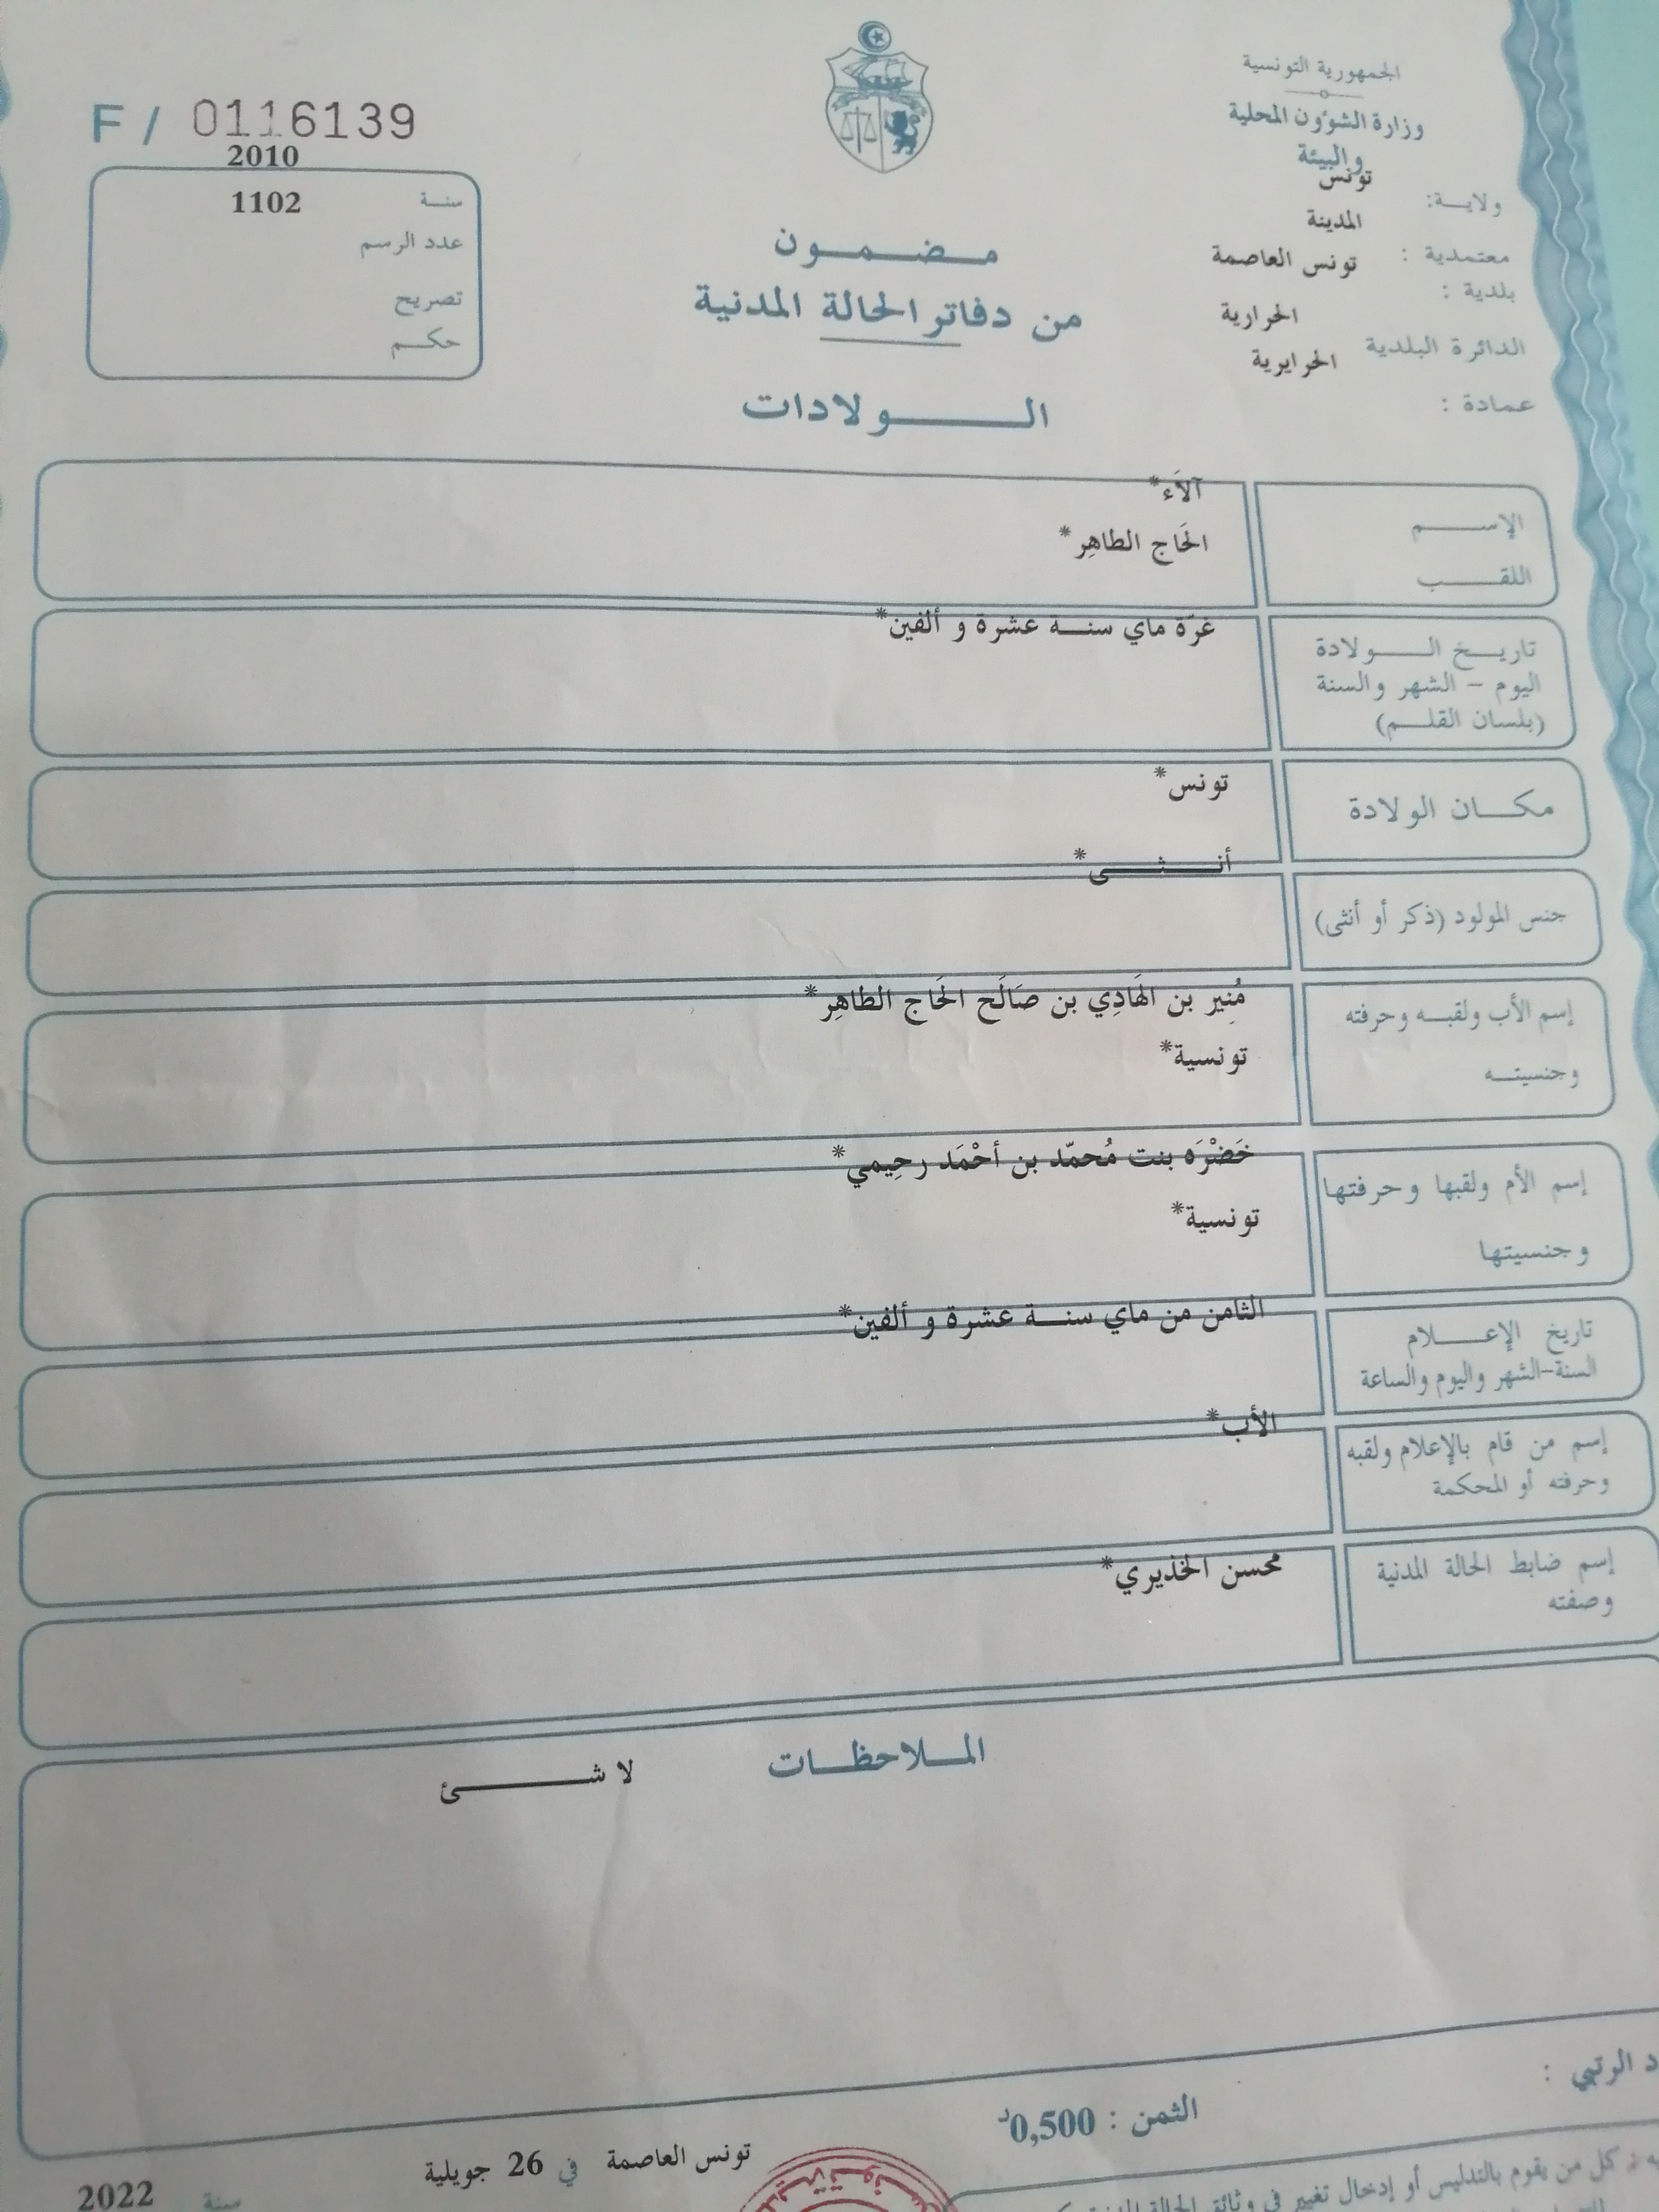 الجمهورية التونسية
وزارة الشؤون المحلية
والبيئة
ولاية: تونس
معتمدية : المدينة
بلدية : تونس العاصمة
الدائرة البلدية الحرارية
عمادة : الحرايرية
F / 0116139
2010
سنة 1102
عدد الرسم
تصريح
حكم
مضمون
من دفاتر الحالة المدنية
الولادات
الإسم آلاَء*
اللقب الحَاج الطاهِر*
تاريخ الولادة غرّة ماي سنة عشرة و ألفين*
اليوم - الشهر والسنة
(بلسان القلم)
مكان الولادة تونس*
جنس المولود (ذكر أو أنثى) أنثى*
إسم الأب ولقبه وحرفته مُنِير بن الهَادِي بن صَالَح الحَاج الطاهِر*
وجنسيته تونسية*
إسم الأم ولقبها وحرفتها خَضْرَه بنت مُحمّد بن أحْمَد رحِيمي*
وجنسيتها تونسية*
تاريخ الإعلام الثامن من ماي سنة عشرة و ألفين*
السنة-الشهر واليوم والساعة
إسم من قام بالإعلام ولقبه الأب*
وحرفته أو المحكمة
إسم ضابط الحالة المدنية محسن الخذيري*
وصفته
الملاحظات لا شئ
د الرتبي :
الثمن : 0,500د
تونس العاصمة في 26 جويلية
سنة 2022
كل من يقوم بالتدليس أو إدخال تغيير في وثائق الحالة المدنية